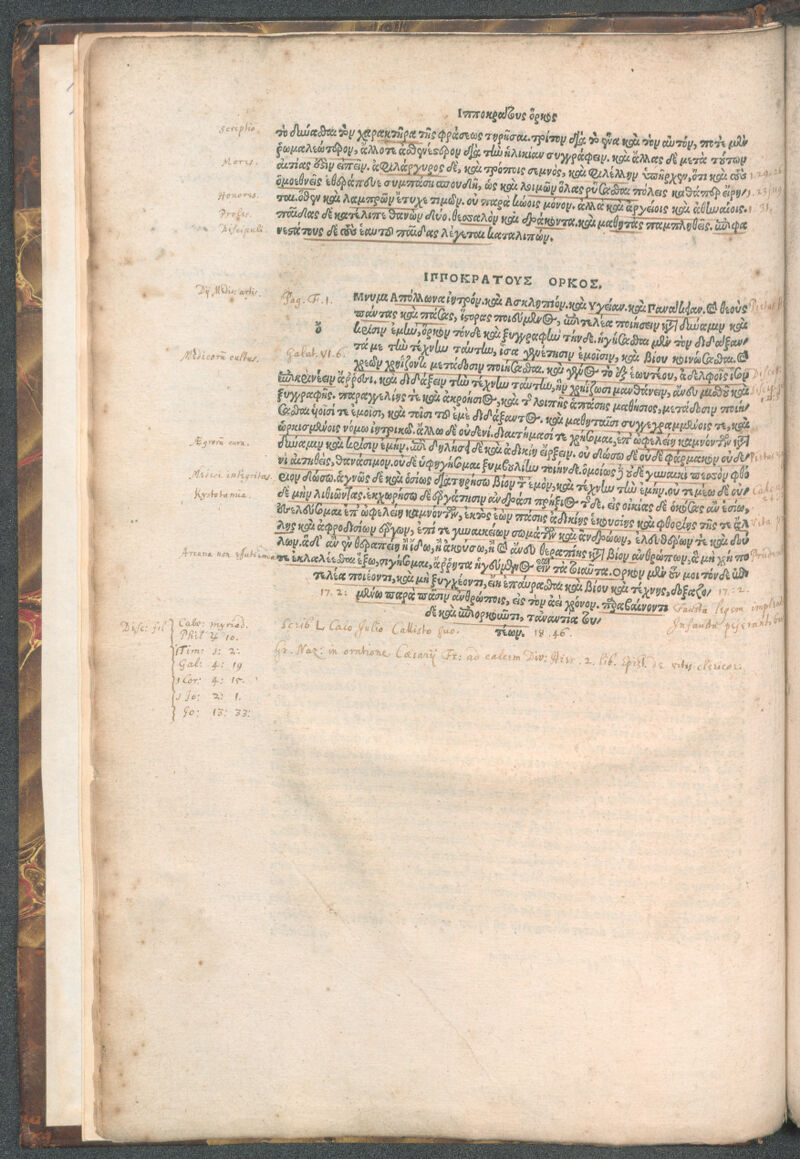 Ἱπποκράτους ὅρκος
τὸ δύναϑαι τὸν χαρακτῆρα τῆς φράσεως τηρῆσαι. τρίτον διὰ τὸ ἕνα καὶ τὸν αὐτόν, ποτὲ μὲν
ῥωμαλεώτερον, ἄλλοτε ἀσθενέστερον διὰ τὴν ἡλικίαν συγγράφειν. καὶ ἄλλας δὲ μετὰ τούτων
αἰτίας ἔστιν εἰπεῖν. ἀφιλάργυρος δὲ, καὶ τρόποις σεμνὸς, καὶ φιλέλλην ὑπῆρχεν, ὅτι καὶ τοὺς
ὁμοεθνεῖς ἐθεράπευσε συμπάσῃ σπουδῇ, ὡς καὶ λοιμῶν ὅλας ῥύσασθαι πόλεις καθάπερ εἴρη/
ται. ὅθεν καὶ λαμπρῶν ἔτυχε τιμῶν. οὐ παρὰ κώοις μόνον. ἀλλὰ καὶ ἀργείοις καὶ ἀθηναίοις.
παῖδας δὲ κατέλιπε θανὼν δύο. θεσσαλὸν καὶ δράκοντα. καὶ μαθητὰς παμπληθεῖς. ἐπιφα
νεστάτους δὲ τοὺς ἑαυτοῦ παῖδας λέγεται καταλιπών.
ΙΠΠΟΚΡΑΤΟΥΣ ΟΡΚΟΣ.
Ὄμνυμι Ἀπόλλωνα ἰητρόν. καὶ Ἀσκληπιόν. καὶ Ὑγείαν. καὶ Πανάκειαν. καὶ θεοὺς
πάντας καὶ πάσας, ἵστορας ποιεύμενος, ἐπιτελέα ποιήσειν κατὰ δύναμιν καὶ
κρίσιν ἐμὴν, ὅρκον τόνδε καὶ ξυγγραφὴν τήνδε. ἡγήσασθαι μὲν τὸν διδάξαν/
τά με τὴν τέχνην ταύτην, ἴσα γενέτῃσιν ἐμοῖσιν, καὶ βίου κοινώσασθαι. καὶ
χρεῶν χρηίζοντι μετάδοσιν ποιήσασθαι. καὶ γένος τὸ ἐξ ἑωυτέου, ἀδελφοῖς ἴσον
ἐπικρινέειν ἄρρεσι. καὶ διδάξειν τὴν τέχνην ταύτην, ἢν χρηίζωσι μανθάνειν, ἄνευ μισθοῦ καὶ
ξυγγραφῆς. παραγγελίης τε καὶ ἀκροήσιος, καὶ τῆς λοιπῆς ἁπάσης μαθήσιος, μετάδοσιν ποιή/
σασθαι υἱοῖσί τε ἐμοῖσι, καὶ τοῖσι τοῦ ἐμὲ διδάξαντος. καὶ μαθηταῖσι συγγεγραμμένοις τε, καὶ
ὡρκισμένοις νόμῳ ἰητρικῷ. ἄλλῳ δὲ οὐδενί. διαιτήμασί τε χρήσομαι, ἐπ᾽ ὠφελείῃ καμνόντων κατὰ
δύναμιν καὶ κρίσιν ἐμήν. ἐπὶ δηλήσει δὲ καὶ ἀδικίῃ εἴρξειν. οὐ δώσω δὲ οὐδὲ φάρμακον οὐδε/
νὶ αἰτηθεὶς, θανάσιμον. οὐδὲ ὑφηγήσομαι ξυμβουλίην τοιήνδε. ὁμοίως δὲ οὐδὲ γυναικὶ πεσσὸν φθό
ριον δώσω. ἁγνῶς δὲ καὶ ὁσίως διατηρήσω βίον τὸν ἐμόν, καὶ τέχνην τὴν ἐμήν. οὐ τεμέω δὲ οὐ/
δὲ μὴν λιθιῶντας. ἐκχωρήσω δὲ ἐργάτῃσιν ἀνδράσι πρήξιος τῆσδε. εἰς οἰκίας δὲ ὁκόσας ἂν ἐσίω,
ἐσελεύσομαι ἐπ᾽ ὠφελείῃ καμνόντων, ἐκτὸς ἐὼν πάσης ἀδικίης ἑκουσίης καὶ φθορίης τῆς τε ἄλ
λης καὶ ἀφροδισίων ἔργων, ἐπί τε γυναικείων σωμάτων καὶ ἀνδρῴων, ἐλευθέρων τε καὶ δού
λων. ἃ δ᾽ ἂν ἐν θεραπείῃ ἢ ἴδω, ἢ ἀκούσω, ἢ καὶ ἄνευ θεραπηίης κατὰ βίον ἀνθρώπων, ἃ μὴ χρή πο
τε ἐκλαλέεσθαι ἔξω, σιγήσομαι, ἄρρητα ἡγεύμενος εἶναι τὰ τοιαῦτα. Ὅρκον μὲν οὖν μοι τόνδε ἐπι
τελέα ποιέοντι, καὶ μὴ ξυγχέοντι, εἴη ἐπαύρασθαι καὶ βίου καὶ τέχνης, δοξαζο/
μένῳ παρὰ πᾶσιν ἀνθρώποις, εἰς τὸν ἀεὶ χρόνον. παραβαίνοντι
δὲ καὶ ἐπιορκοῦντι, τἀναντία του/
τέων.
Scriptio.
Mores.
Honores.
Profes.
Discipuli.
Dij Medic: artis.
Pag. F. 1.
Medicorũ cultus.
Galat. VI. 6.
Ægrorũ cura.
Medici integritas.
Lystotomia.
Arcana non
17. 2:
17: 2.
18. 46.
Scrib L. Caio Julio Callisto suo.
Gr. Naz: in oratione Cæsarij Fr: ad calcem Div: Hier. 2. lib. Epist. de vitis clericor.
Phil 4 10.
1 Tim: 5: 2:
Gal: 4: 19
1 Cor: 4: 15.
1 Jo: 2: 1.
Jo: 13: 33: